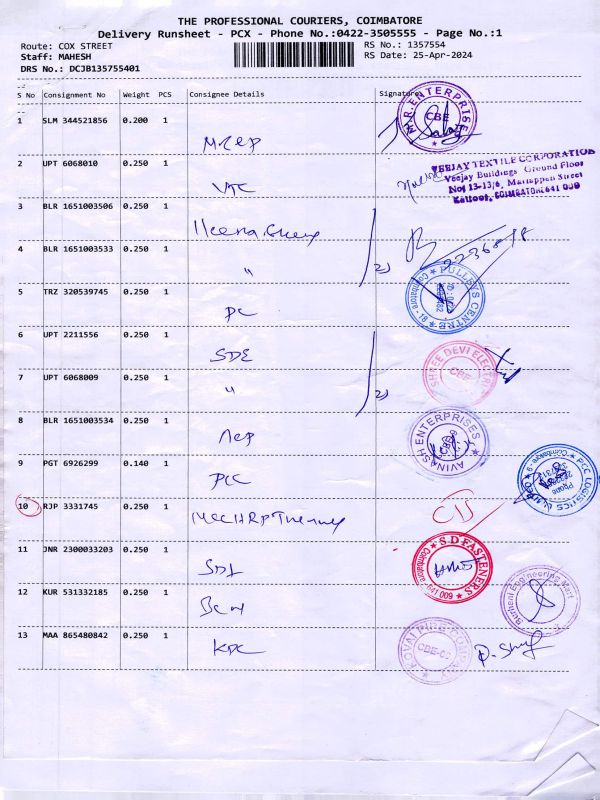 THE PROFESSIONAL COURIERS, COIMBATORE
Delivery Runsheet - PCX - Phone No.:0422-3505555 - Page No.:1
Route: COX STREET
RS No.: 1357554
Staff: MAHESH
RS Date: 25-Apr-2024
DRS No.: DCJB135755401
S No Consignment No Weight PCS Consignee Details Signature
1 SLM 344521856 0.200 1
M.R.ENTERPRISE CBE
2 UPT 6068010 0.250 1 VTC
VEEJAY TEXTILE CORPORATION
Veejay Buildings Ground Floor
No: 13-13/6, Mariappen Street
Kattoor, COIMBATORE 641 009
3 BLR 1651003506 0.250 1
4 BLR 1651003533 0.250 1 "
2)
5 TRZ 320539745 0.250 1 PC
PULLEYS CENTRE Coimbatore - 18
6 UPT 2211556 0.250 1 SDE
SHREE DEVI ELECTRI CBE
7 UPT 6068009 0.250 1 "
2)
8 BLR 1651003534 0.250 1
AVINASH ENTERPRISES
9 PGT 6926299 0.140 1 PCC
PCC LOGISTICS
10 RJP 3331745 0.250 1
11 JNR 2300033203 0.250 1
S D FASTENERS
12 KUR 531332185 0.250 1
13 MAA 865480842 0.250 1 KPC
KOVAI PIPE COMPANY